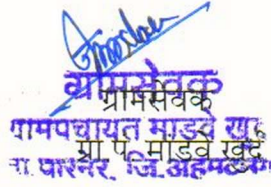 ग्रामसेवक
ग्रामसेवक
ग्रामपंचायत माडवे खु॥
ग्रा. प. माडवे खुर्द
ता. पारनेर, जि. अहमद